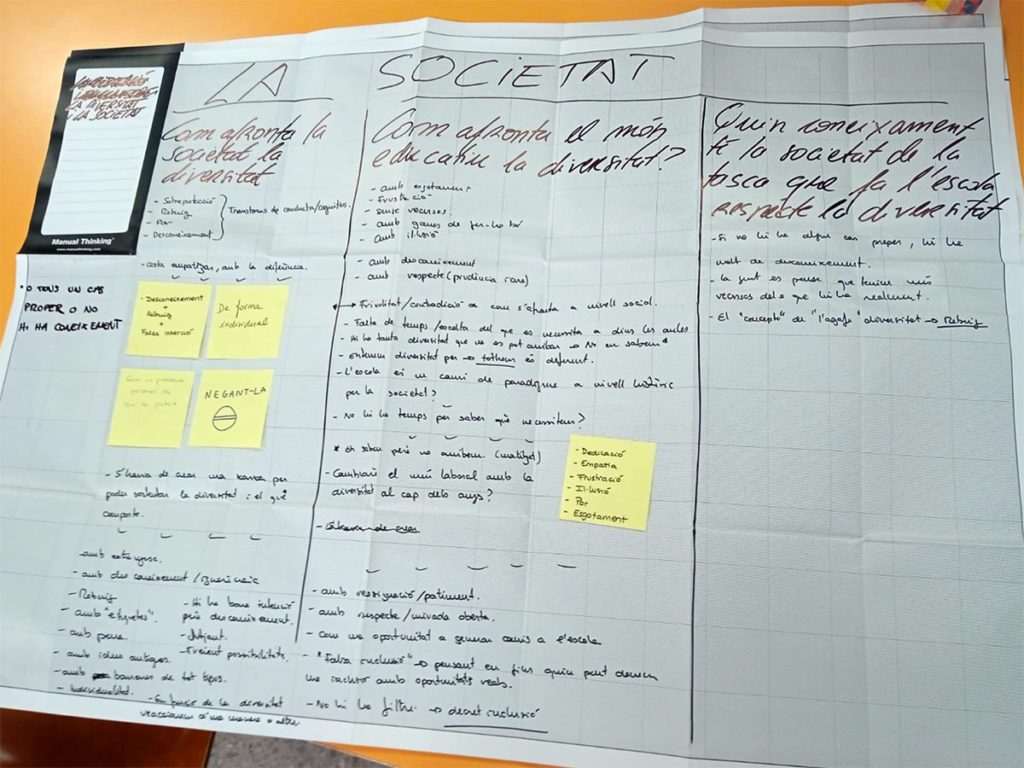 LA SOCIETAT
LA DIVERSITAT
i LA SOCIETAT
Manual Thinking
www.manualthinking.com
• O TENS UN CAS
PROPER O NO
HI HA CONEIXEMENT
Com afronta la
societat la
diversitat
- Sobreprotecció
- Rebuig
- Por
- Desconeixement
Transtorns de conducta/cognitius.
- costa empatitzar, amb la diferència.
• Desconeixement
+
Rebuig
+
Falsa inserció
De forma
individual
NEGANT-LA
- S'hauria de crear una xarxa per
poder sostenir la diversitat i el què
comporta.
- amb estranyesa.
- amb desconeixement / ignorància
- Rebuig
- amb "etiquetes".
- amb pena.
- amb idees antigues.
- amb barreres de tot tipus.
- Individualitat.
- Hi ha bona intenció
però desconeixement.
- Jutjant.
- Treient possibilitats.
- En funció de la diversitat
reaccionem d'una manera o altra
Com afronta el món
educatiu la diversitat?
- amb esgotament
- Frustració
- sense recursos.
- amb ganes de fer-ho bé
- amb il·lusió
- amb desconeixement
- amb respecte (prudència)
Frivolitat/contradicció de com s'afronta a nivell social.
- Falta de temps/escolta del que es necessita a dins les aules
- Hi ha tanta diversitat que no es pot arribar → No en sabem*
- Entenem diversitat per → tothom és diferent.
- L'escola és un canvi de paradigma a nivell històric
per la societat?
- No hi ha temps per saber què necessiten?
* en sabem però no arribem (matitzat)
- Canviarà el món laboral amb la
diversitat al cap dels anys?
• Dedicació
- Empatia
- Frustració
- Il·lusió
- Por
- Esgotament
- amb resignació/patiment.
- amb respecte/mirada oberta.
- Com una oportunitat a generar canvis a l'escola
- "Falsa inclusió" → pensant en fins quin punt donem
una inclusió amb oportunitats reals.
- No hi ha filtre → decret inclusió
Quin coneixament
té la societat de la
tasca que fa l'escola
respecte la diversitat
- Si no hi ha algun cas proper, hi ha
molt de desconeixement.
- La gent es pensa que tenim més
recursos dels que hi ha realment.
- El "concepte" de "l'agafa" diversitat → Rebuig